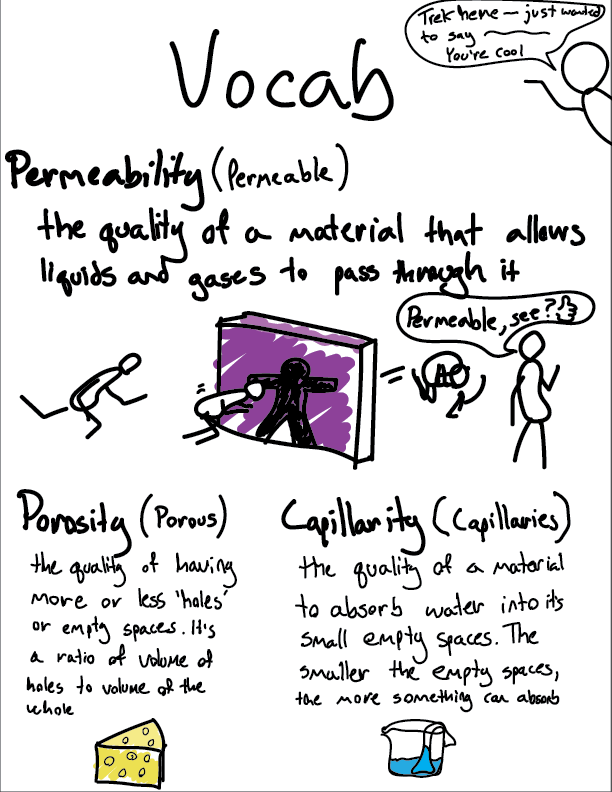 Trek here — just wanted
to say
You're cool
Vocab
Permeability (Permeable)
the quality of a material that allows
liquids and gases to pass through it
Permeable, see?
Porosity (Porous)
the quality of having
more or less 'holes'
or empty spaces. It's
a ratio of volume of
holes to volume of the
whole
Capillarity (Capillaries)
the quality of a material
to absorb water into its
small empty spaces. The
smaller the empty spaces,
the more something can absorb